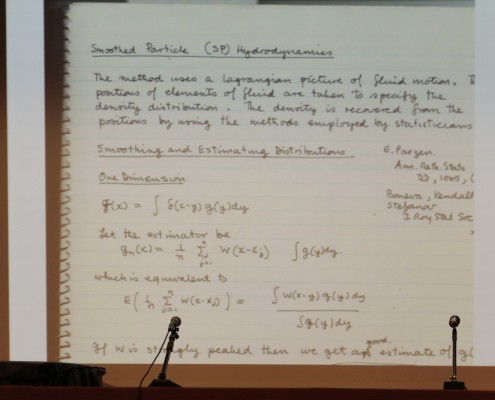 Smoothed Particle (SP) Hydrodynamics
The method uses a lagrangian picture of fluid motion.
positions of elements of fluid are taken to specify the
density distribution. The density is recovered from the
positions by using the methods employed by statisticians
Smoothing and Estimating Distributions
E. Parzen
Ann. Math. Stats
33, 1065, (
One Dimension
Boneva, Kendall
Stefanov
J. Roy Stat Soc
g(x) = ∫ δ(x-y) g(y) dy
Let the estimator be
gₙ(x) = 1/n Σ W(x-xⱼ) ∫ g(y) dy
which is equivalent to
E( 1/n Σ W(x-xⱼ) ) = ∫ W(x-y) g(y) dy / ∫ g(y) dy
If W is strongly peaked then we get a good estimate of g(